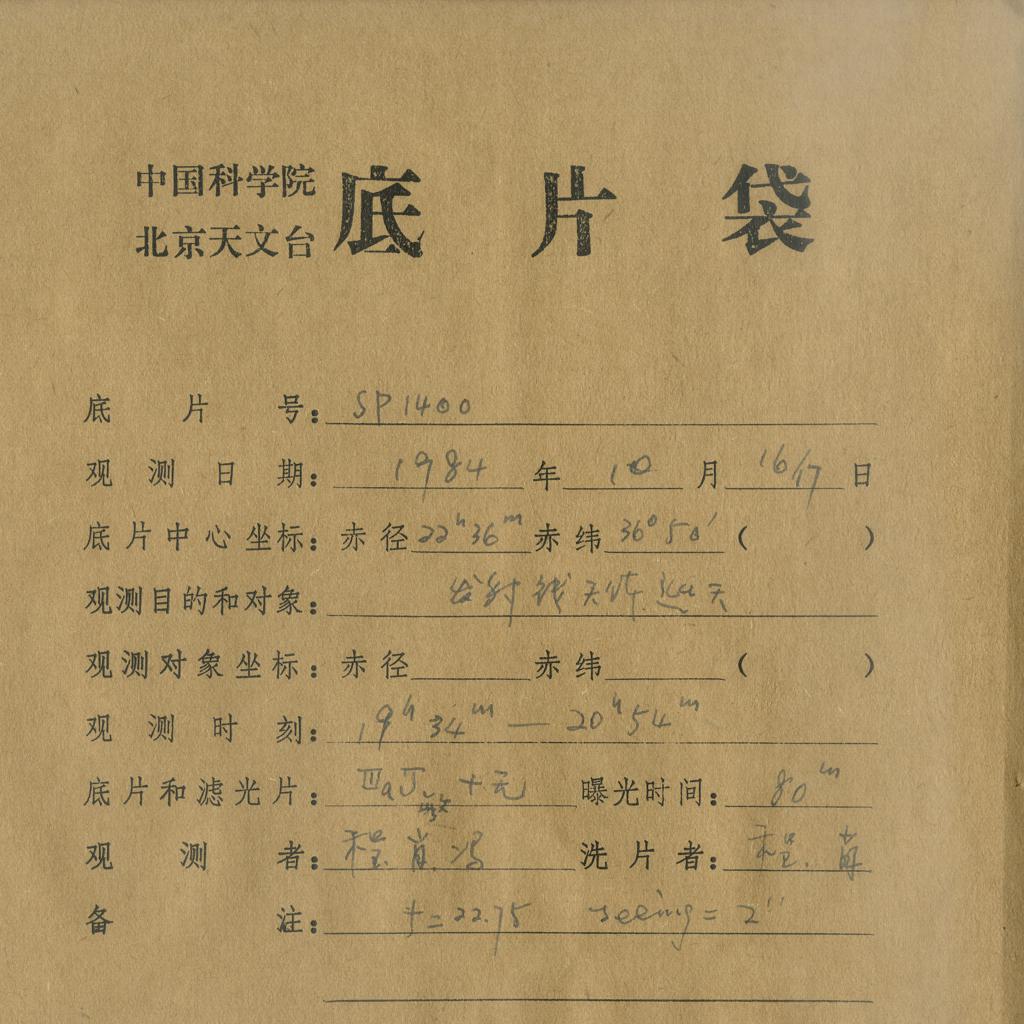 中国科学院
北京天文台
底片袋
底片号：SP1400
观测日期：1984年10月16/17日
底片中心坐标：赤径22h36m赤纬36°50′（ ）
观测目的和对象：发射线天体巡天
观测对象坐标：赤径 赤纬 （ ）
观测时刻：19h34m — 20h54m
底片和滤光片：ⅢaJ敏+无 曝光时间：80m
观测者：程.肖.冯 洗片者：程.肖
备注：f=22.75 seeing=2″